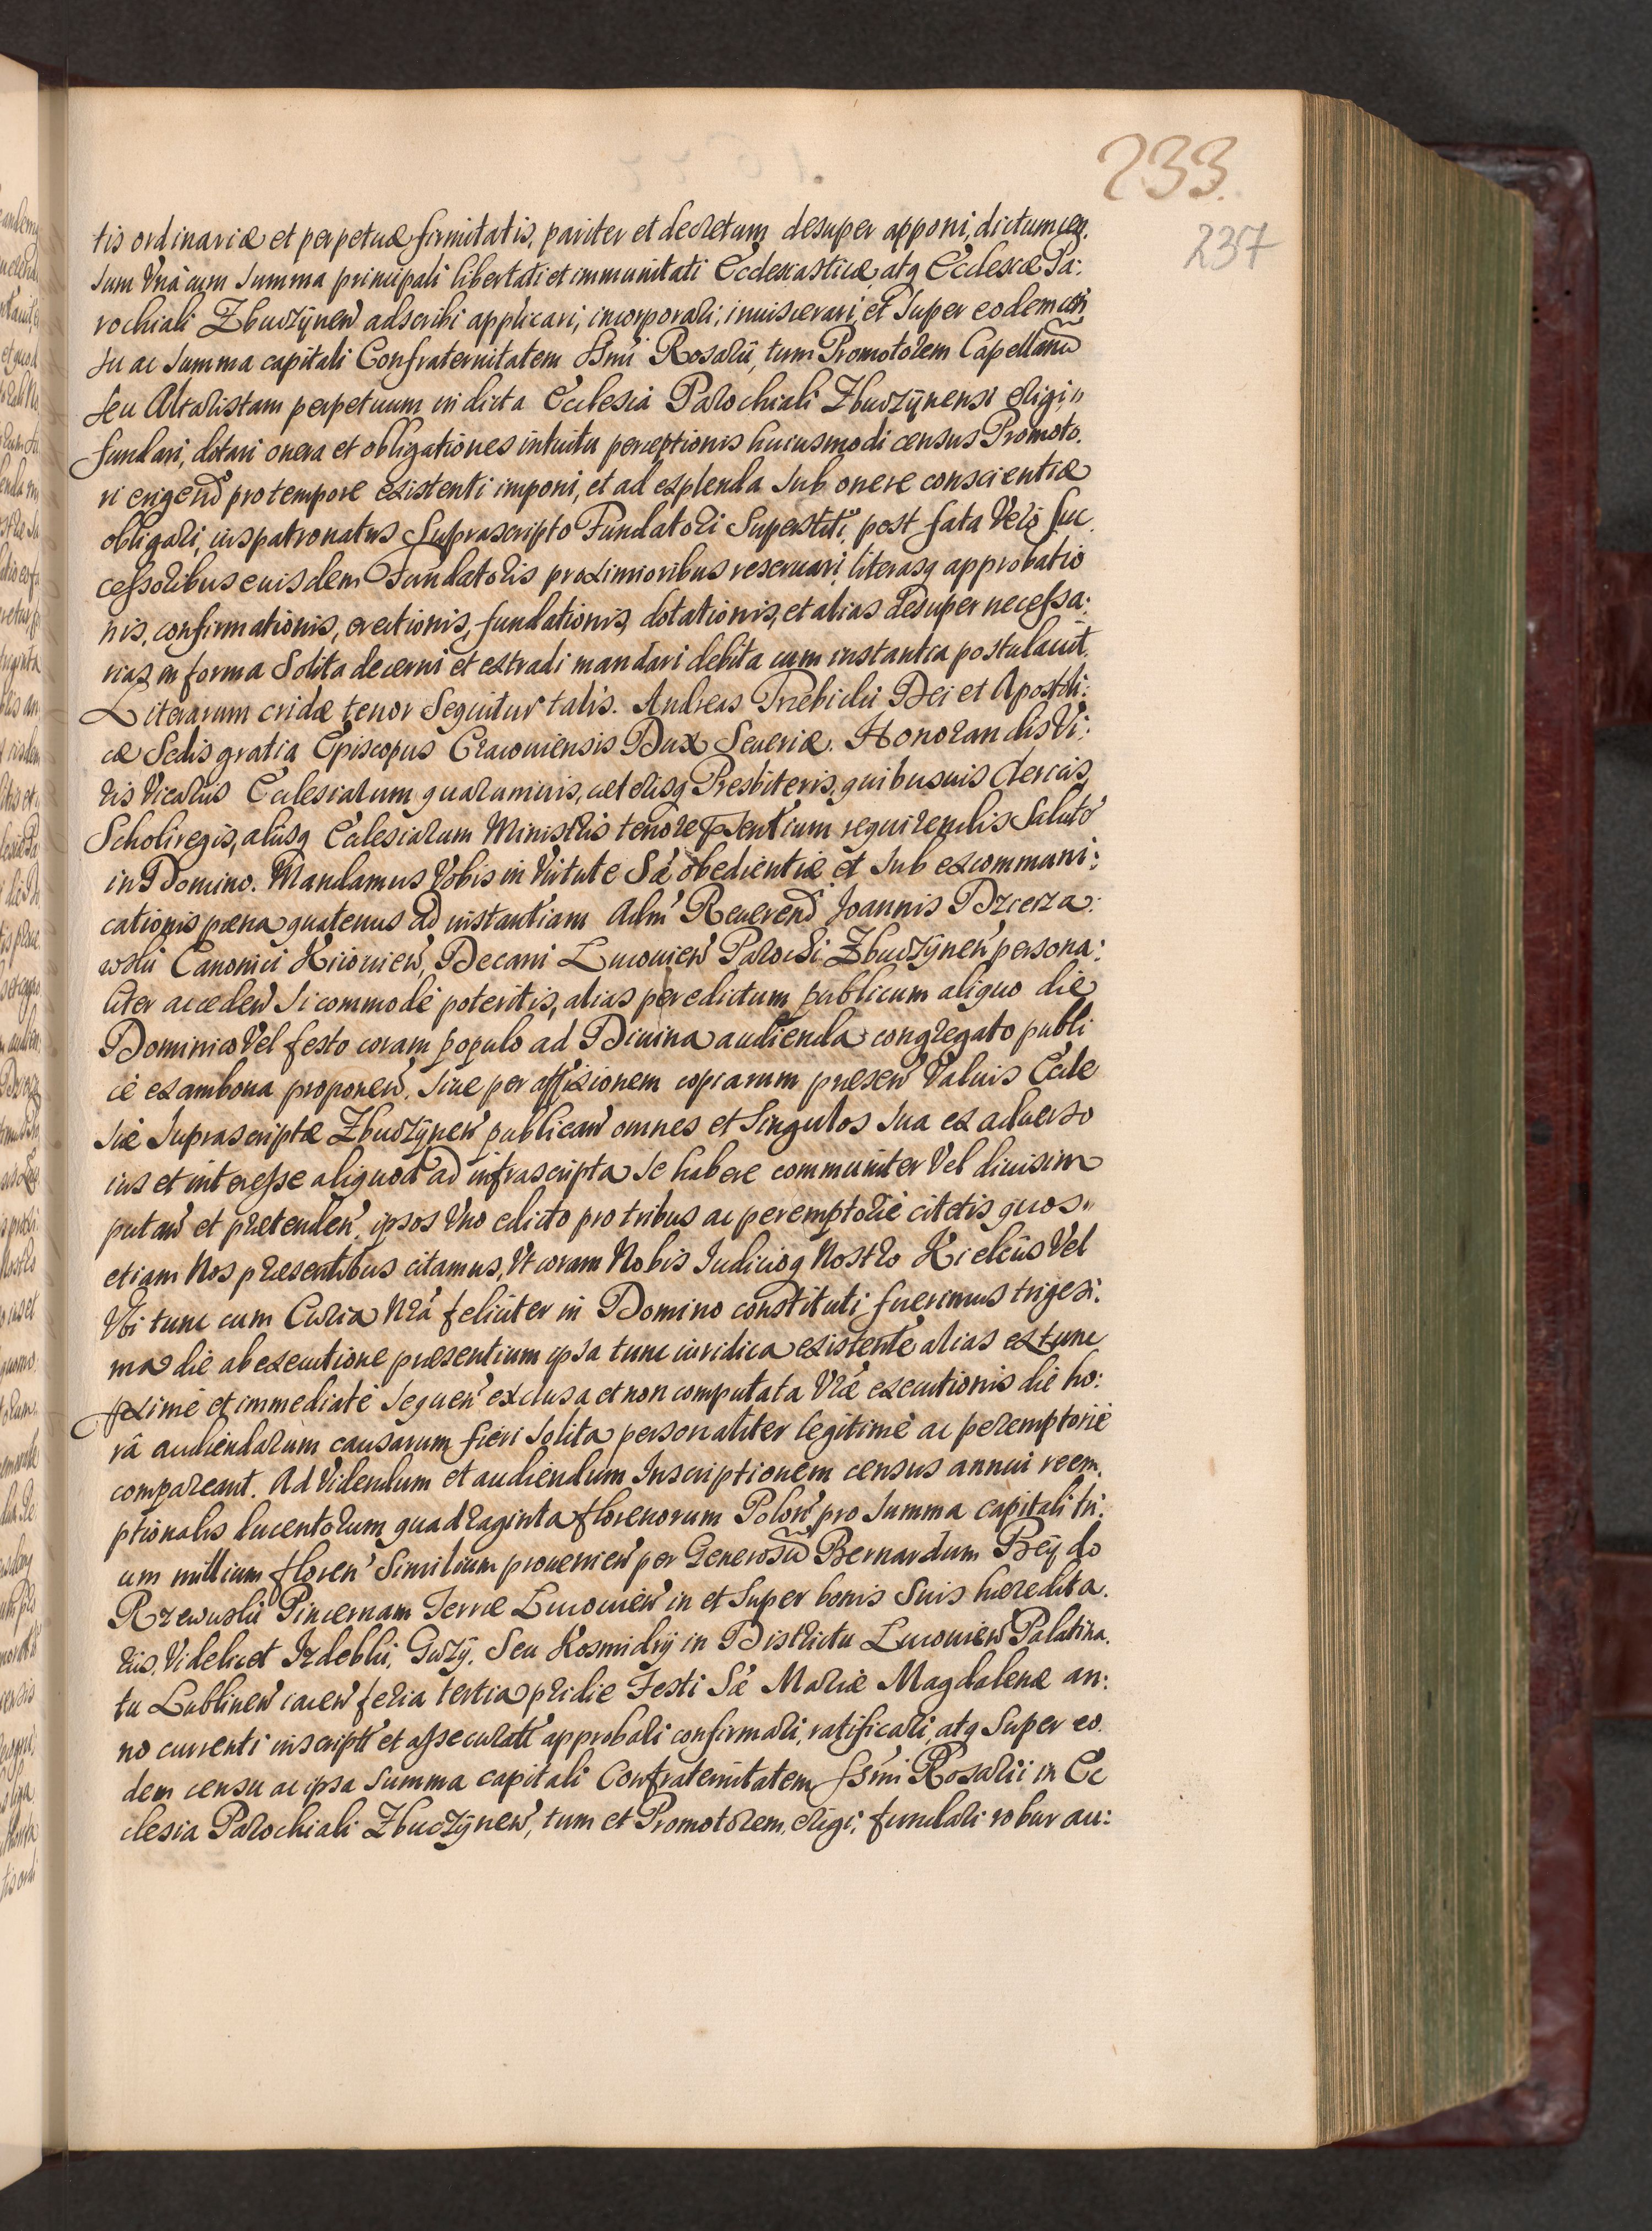 233.
237
tis ordinariæ et perpetuæ firmitatis, pariter et decretum desuper apponi, dictum cen,
sum Vná cum summa principali libertati et immunitati Ecclesiasticæ, atq Ecclesiæ Pa:
rochiali Zbuczÿnen adscribi applicari, incorporari, inuiscerari, et super eodem cen,
su ac summa capitali Confraternitatem SSmi Rosarÿ, tum Promotorem Capellanū
seu Altaristam perpetuum in dicta Ecclesia Parochiali Zbuczÿnensi erigi,,
fundari, dotari onera et obligationes intuitu perceptionis huiusmodi census Promoto,
ri erigend pro tempore existenti imponi, et ad explenda sub onere conscientiæ
obligari, iuspatronatus suprascripto Fundatori superstiti, post fata Vero suc,
cessoribus euisdem Fundatoris proximioribus reseruari, literasq approbatio
nis, confirmationis, erectionis, fundationis, dotationis, et alias desuper necessa:
rias in forma solita decerni et extradi mandari debita cum instantia postulauit.
Literarum cridæ tenor sequitur talis. Andreas Trzebicki Dei et Apostoli:
cæ Sedis gratia Episcopus Cracouiensis Dux Seueriæ. Honorandis Vi:
ris Vicariis Ecclesiarum quarumuis, cæterisq Presbiteris, quibusuis Clericis,
Scholiregis, aliisq Ecclesiarum Ministris tenore pͬsentium requirendis Salutē
in Domino. Mandamus Vobis in Virtute Sæ obedientiæ et sub excommuni:
cationis pæna quatenus ad instantiam Adm Reuerend Joannis Dzierza:
wski Canonici Kiiouien, Decani Lucouien Parochi Zbuczÿnen persona:
liter acceden si commode poteritis, alias per edictum publicum aliquo die
Dominico Vel festo coram populo ad Diuina audienda congregato publi
cé ex ambona proponen, siue per affixionem copiarum præsen Valuis Eccle
siæ suprascriptæ Zbuczÿnen publican omnes et singulos sua ex aduerso
ius et interesse aliquod ad infrascripta se habere communiter Vel diuisim
putan et prætenden, ipsos Vno edicto pro tribus ac peremptorié citetis quos,,
etiam Nos præsentibus citamus, Vt coram Nobis Judicioq Nostro Kielciis Vel
Vbi tunc cum Curia Nrá feliciter in Domino constituti fuerimus trigesi:
ma die ab executione præsentium ipsa tunc iuridica existente alias ex tunc
pximé et immediaté sequen exclusa et non computata Vræ executionis die ho:
râ audiendarum causarum fieri solita personaliter legitimé ac peremptorié
compareant. Ad Videndum et audiendum Inscriptionem census annui reem,
ptionalis ducentorum quadraginta florenorum Polon pro summa capitali tri:
um millium floren similium prouenien per Generosū Bernardum Beÿ do
Rzewuski Pincernam Terræ Lucouien in et super bonis suis hæredita.
riis, Videlicet Jzdebki, Guzÿ, seu Kosmidrÿ in Districtu Lucouien Palatina,
tu Lublinen iacen feria tertia pridie Festi Sæ Mariæ Magdalenæ an:
no currenti inscript et assecurat approbari confirmari, ratificari, atq super eo
dem censu ac ipsa summa capitali Confraternitatem SSmi Rosarii in Ec
clesia Parochiali Zbuczÿnen, tum et Promotorem erigi, fundari robur au: